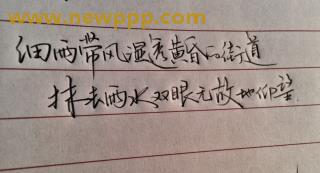 www.newppp.com
细雨带风湿透黄昏的街道
抹去雨水双眼无故地仰望